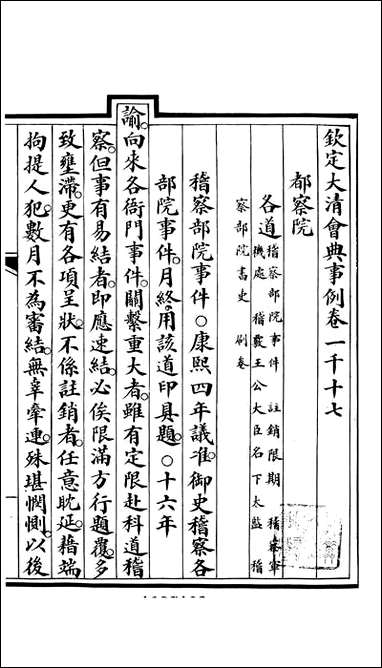 欽定大清會典事例卷一千十七
都察院
各道稽察部院事件 註銷限期 稽察軍
機處 稽覈王公大臣名下太監 稽
察部院書吏 刷卷
稽察部院事件○康熙四年議准御史稽察各
部院事件月終用該道印具題○十六年
諭向來各衙門事件關繫重大者雖有定限赴科道稽
察但事有易結者即應速結必俟限滿方行題覆多
致壅滯更有各項呈狀不係註銷者任意眈延藉端
拘提人犯數月不為審結無辜牽連殊堪憫惻以後